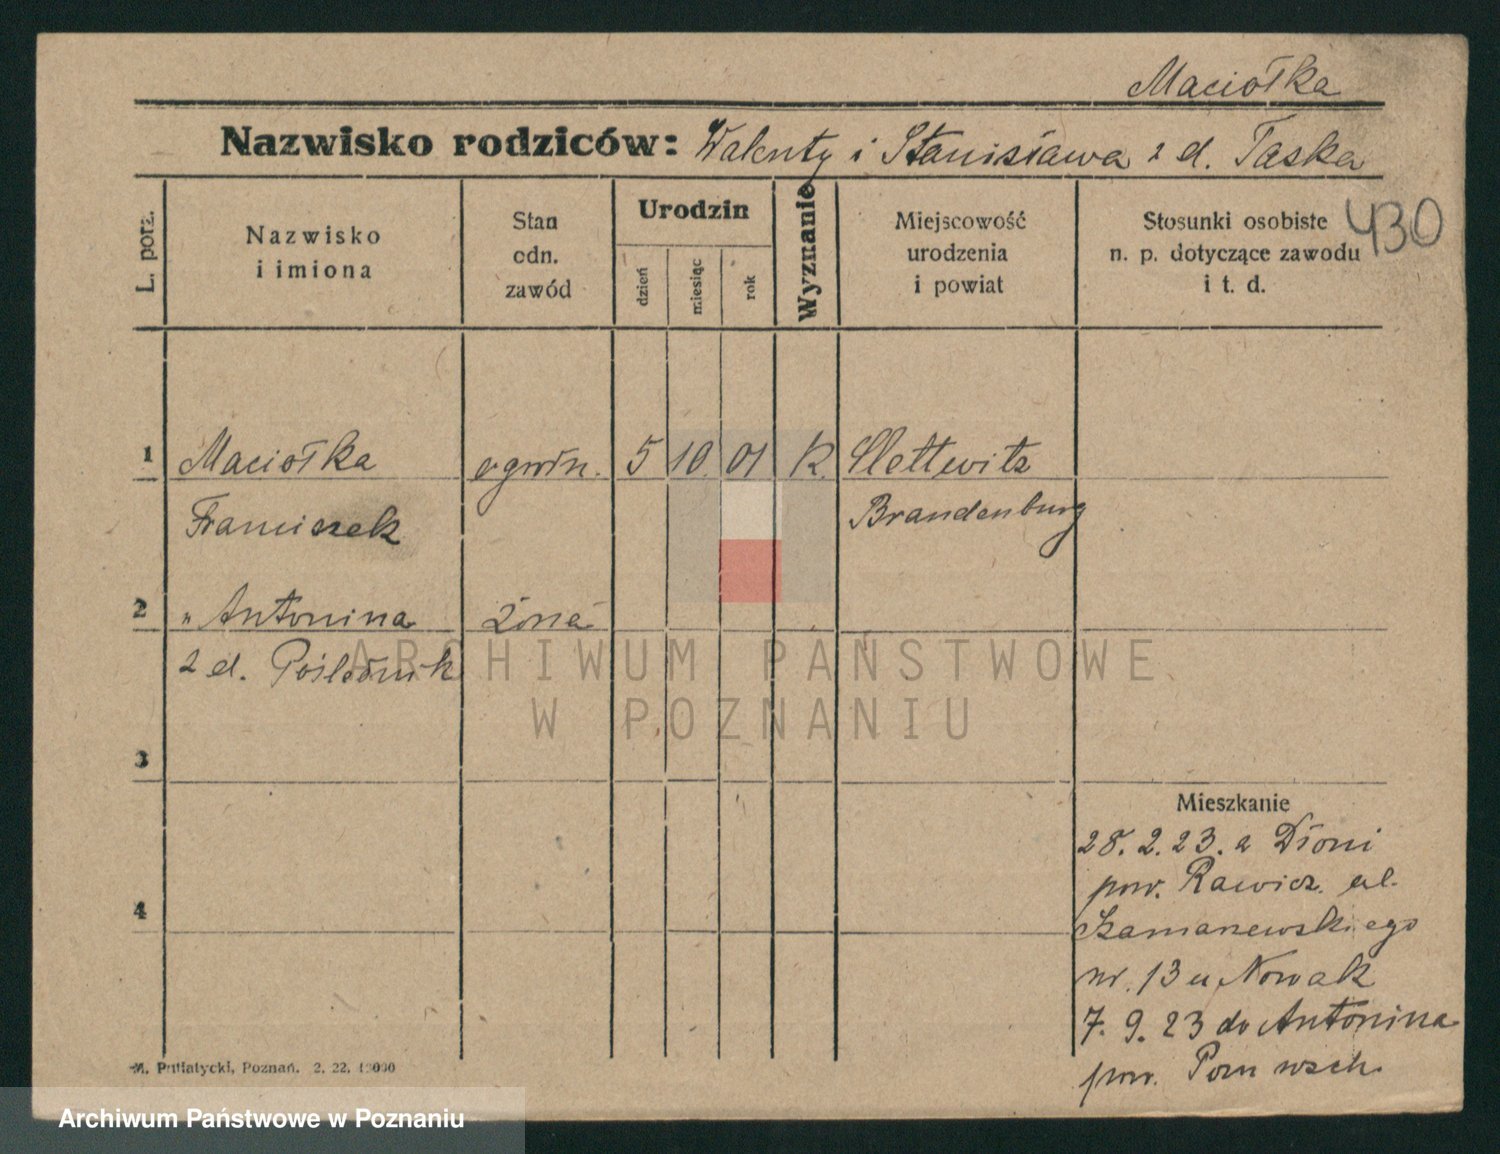 Maciołka
Nazwisko rodziców: Walenty i Stanisława z d. Taska
430
L. porz.
Nazwisko
i imiona
Stan
odn.
zawód
Urodzin
dzień
miesiąc
rok
Wyznanie
Miejscowość
urodzenia
i powiat
Stosunki osobiste
n. p. dotyczące zawodu
i t. d.
1 Maciołka ogrodn. 5 10 01 K. Slettwitz
Franciszek Brandenburg
2 " Antonina żona
z d. Poślednik
3
Mieszkanie
28. 2. 23. z Dłoni
pow. Rawicz. ul.
4
Szamarzewskiego
nr. 13 u Nowak
7. 9. 23 do Antonina
pow. Pozn wsch.
M. Putiatycki, Poznań. 2. 22. 10000
ARCHIWUM PAŃSTWOWE
W POZNANIU
Archiwum Państwowe w Poznaniu